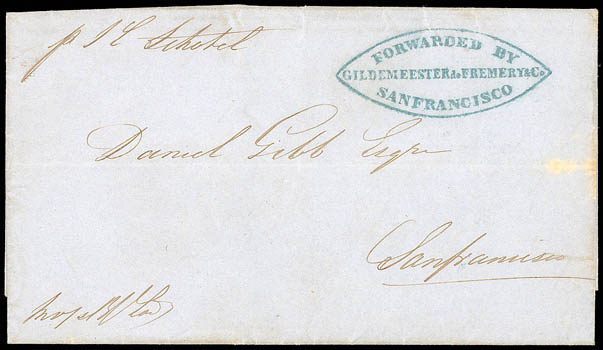 FORWARDED BY
GILDEMEESTER de FREMERY & Co.
SAN FRANCISCO
Daniel Gibb Esqre
Sanfrancisco